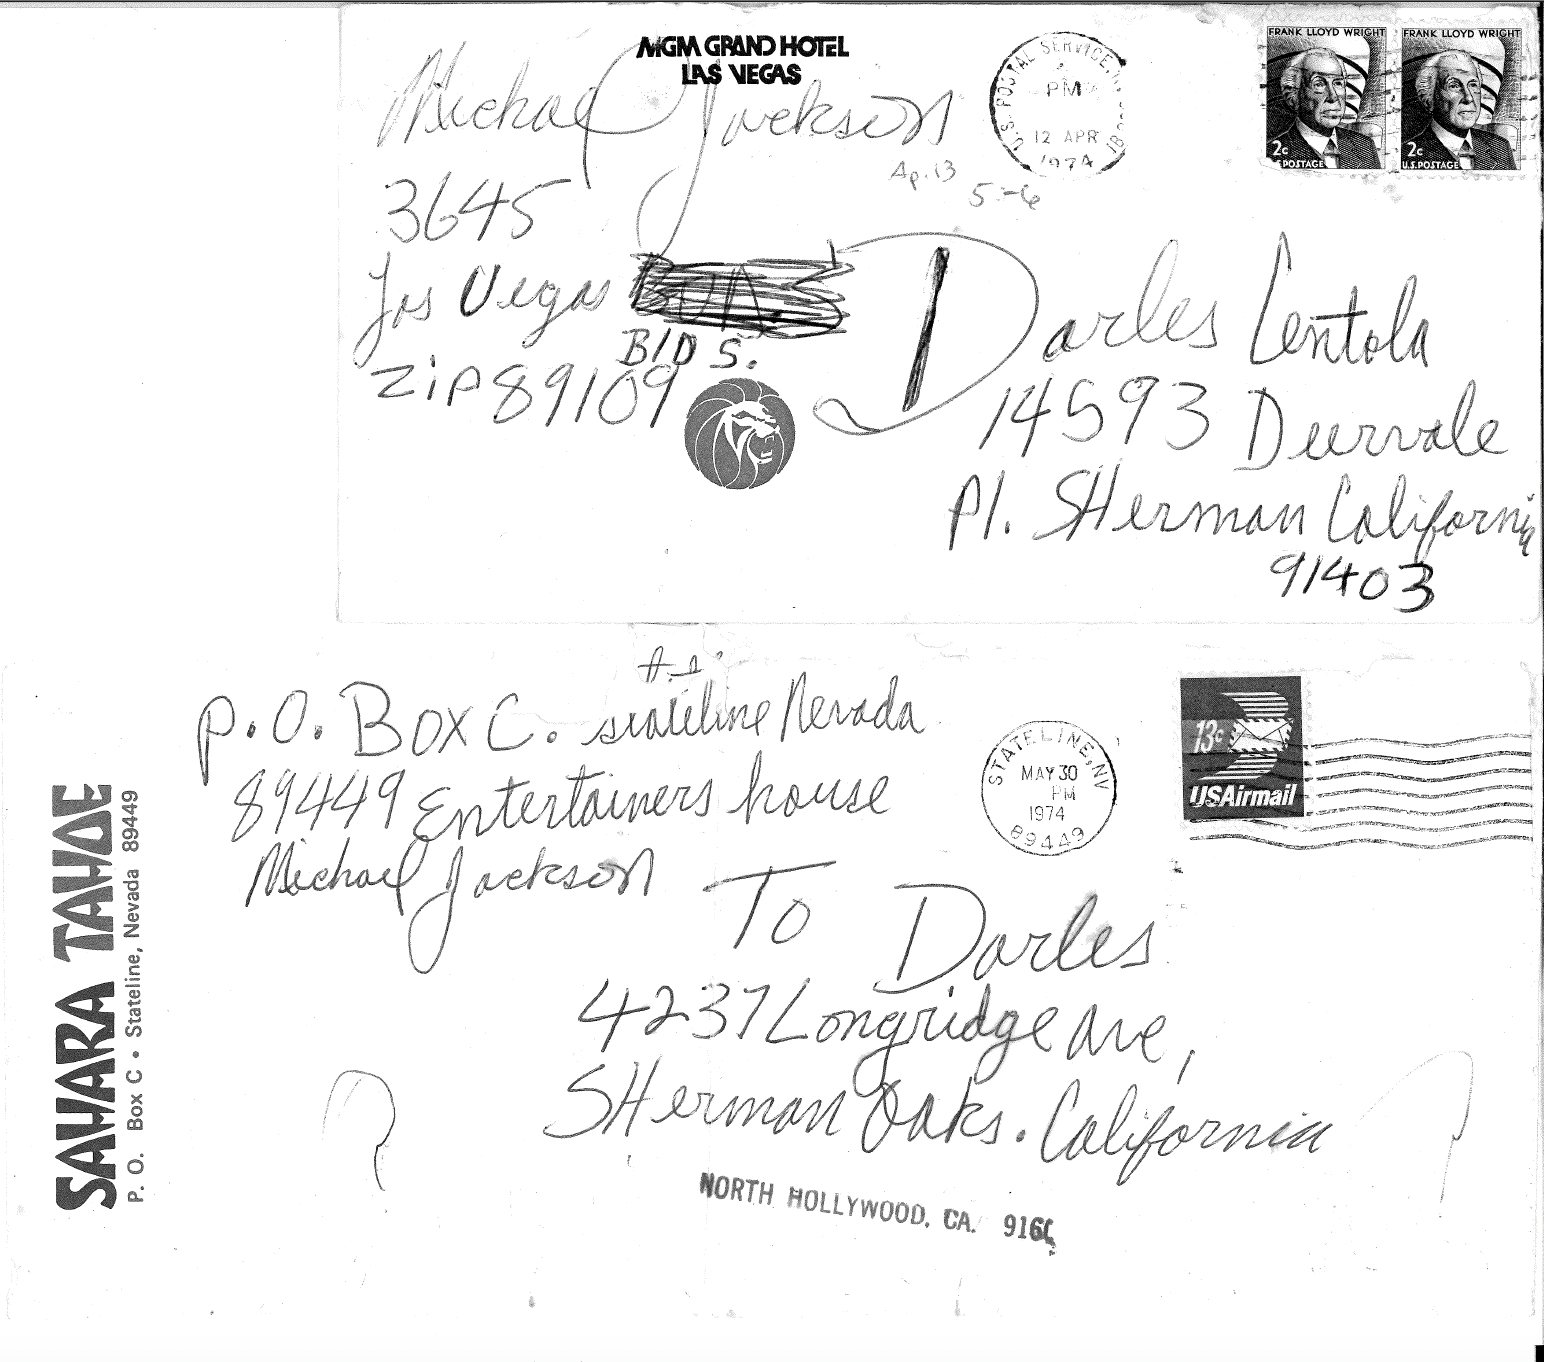 MGM GRAND HOTEL
LAS VEGAS
Michael Jackson
3645
Las Vegas
BlD S.
Zip 89109
U.S. POSTAL SERVICE
PM
12 APR
1974
Ap. 13
5-6
FRANK LLOYD WRIGHT
2c
U.S. POSTAGE
FRANK LLOYD WRIGHT
2c
U.S. POSTAGE
Darles Lentola
14593 Deervale
Pl. SHerman California
91403
SAHARA TAHOE
P. O. Box C • Stateline, Nevada 89449
P.O. Box C. stateline Nevada
89449 Entertainers house
Michael Jackson
STATELINE, NV
MAY 30
PM
1974
89449
13c
USAirmail
To Darles
4237 Longridge Ave,
SHerman Oaks. California
NORTH HOLLYWOOD, CA.